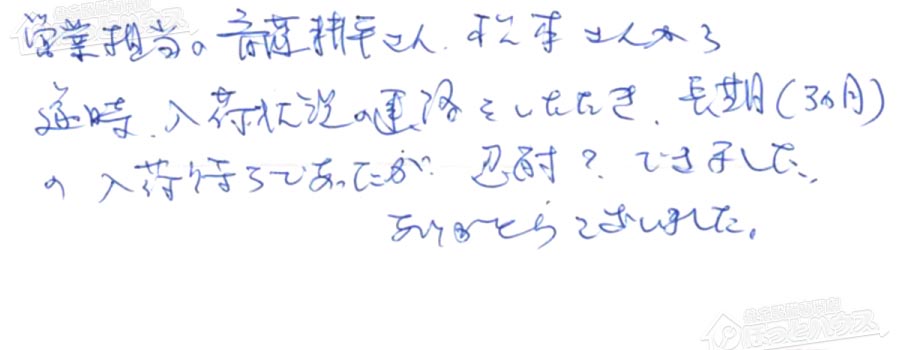 営業担当の斉藤耕平さん、松本さんから
逐時、入荷状況の連絡をいただき、長期(3ヵ月)
の入荷待ちであったが、忍耐?できました。
ありがとうございました。
住宅設備専門館
ほっとハウス